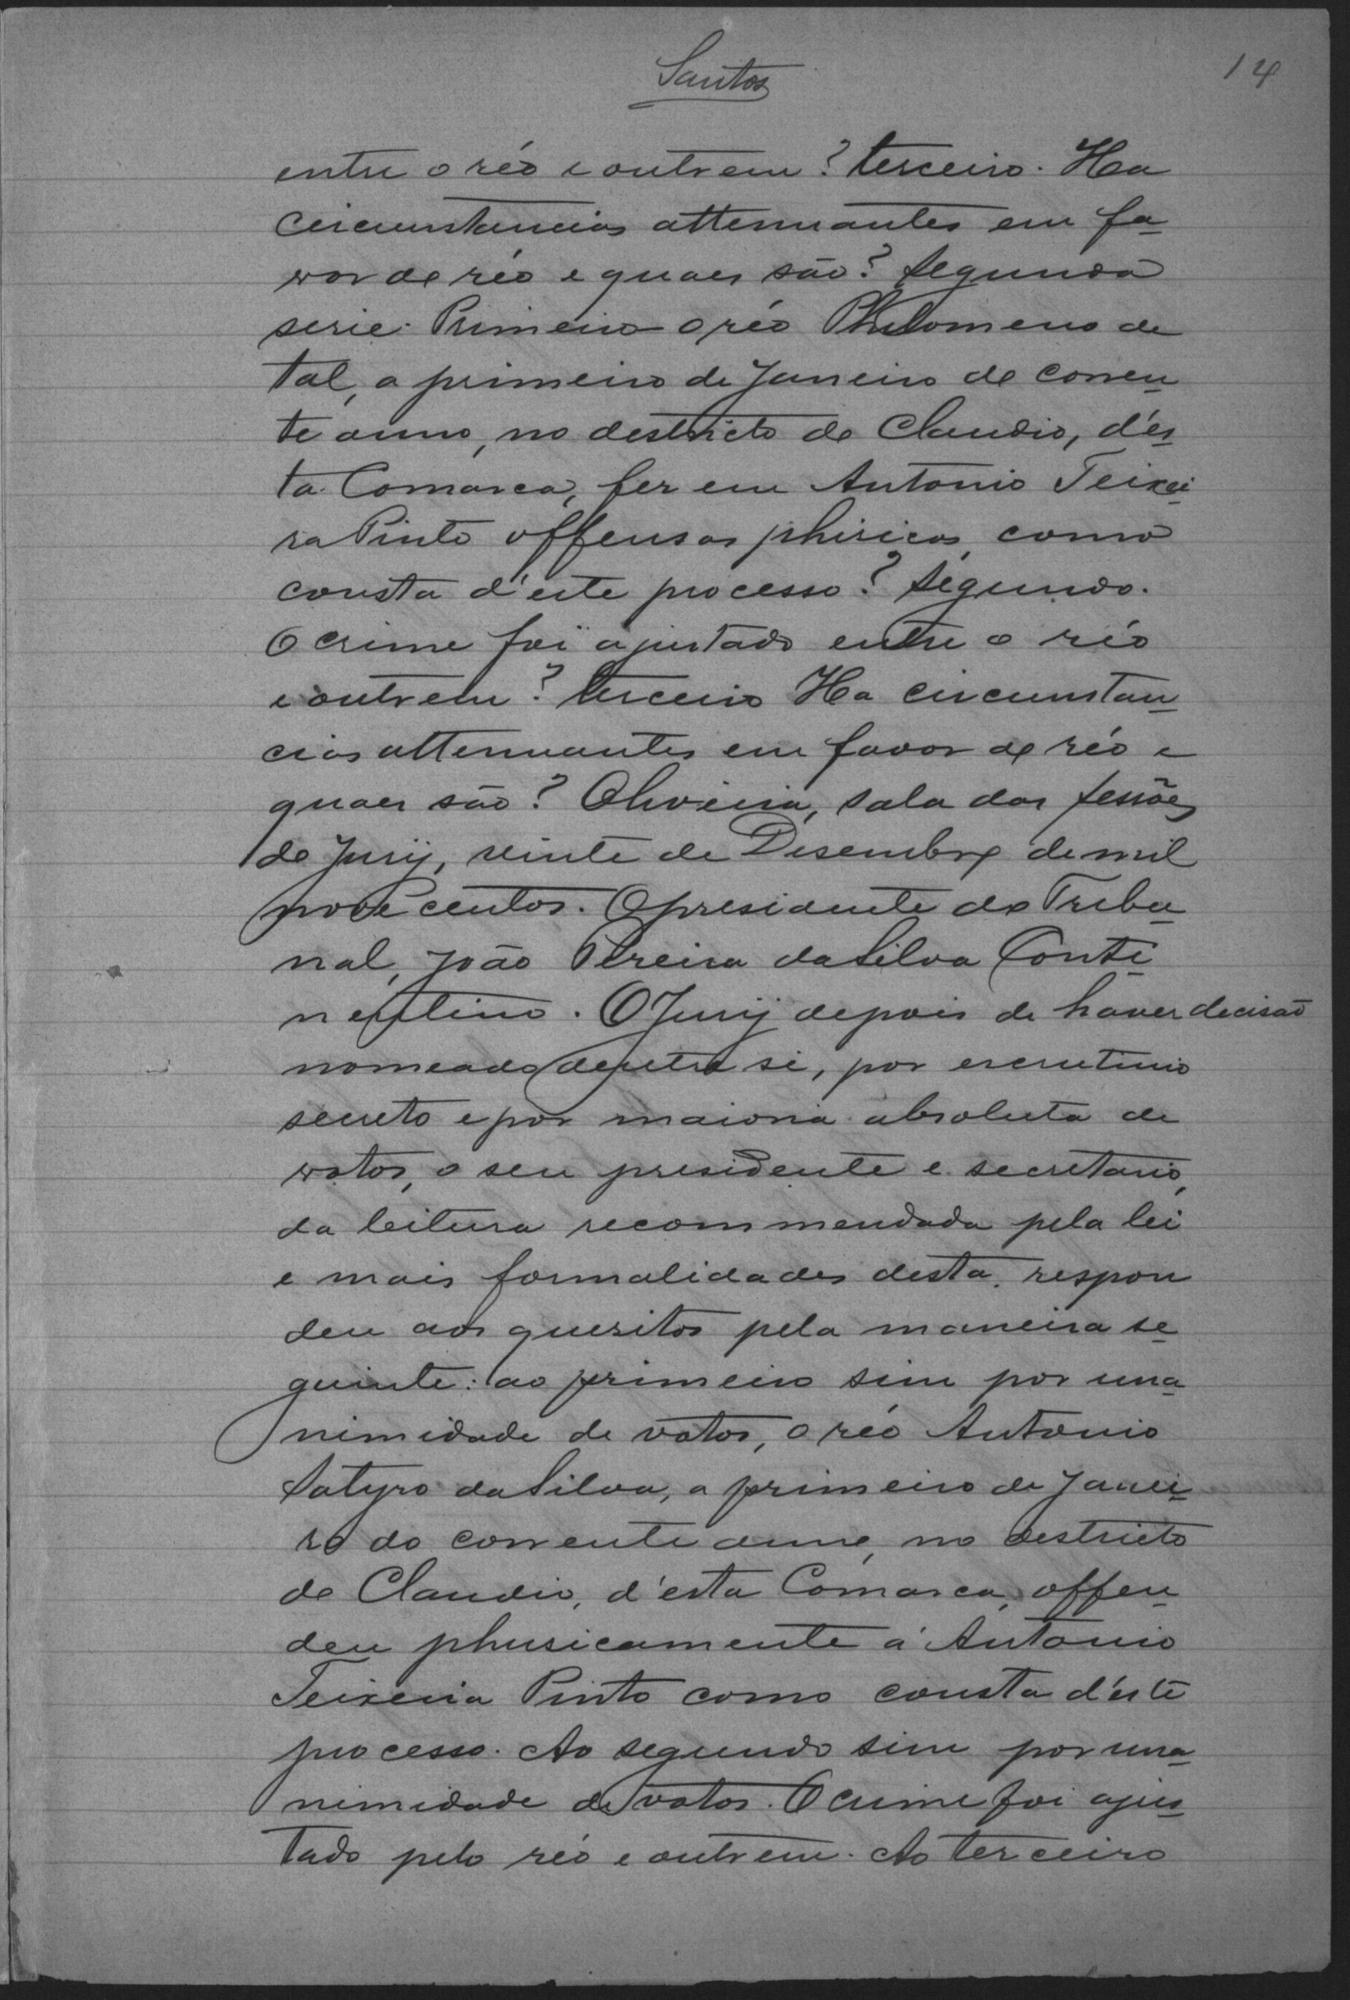 Santos
14
entre o réo e outrem? terceiro. Ha
circunstancias attenuantes em fa-
vor do réo e quaes são? Segunda
serie: Primeiro o réo Philomeno de
tal, a primeiro de Janeiro do corren-
te anno, no destricto do Claudio, d'és-
ta Comarca, fez em Antonio Teixei-
ra Pinto offensas phisicas, como
consta d'este processo? Segundo.
O crime foi ajustado entre o réo
e outrem? terceiro Ha circumstan-
cias attenuantes em favor do réo e
quaes são? Oliveira, sala das sessões
do Jury, vinte de Desembro de mil
nove centos. O presidente do Tribu-
nal, João Pereira da Silva Conti-
nentino. O Jury depois de haver decisão
nomeado dentre si, por escrutinio
secreto e por maioria absoluta de
votos, o seu presidente e secretario,
da leitura recommendada pela lei
e mais formalidades desta, respon
deu aos quesitos pela maneira se-
guinte: ao primeiro sim por una-
nimidade de votos, o réo Antonio
Satyro da Silva, a primeiro de Janei-
ro do corrente anno, no destricto
do Claudio, d'esta Comarca, offen-
deu phusicamente á Antonio
Teixeira Pinto como consta d'éste
processo. Ao segundo sim por una-
nimidade de votos. O crime foi ajus-
tado pelo réo e outrem. Ao terceiro